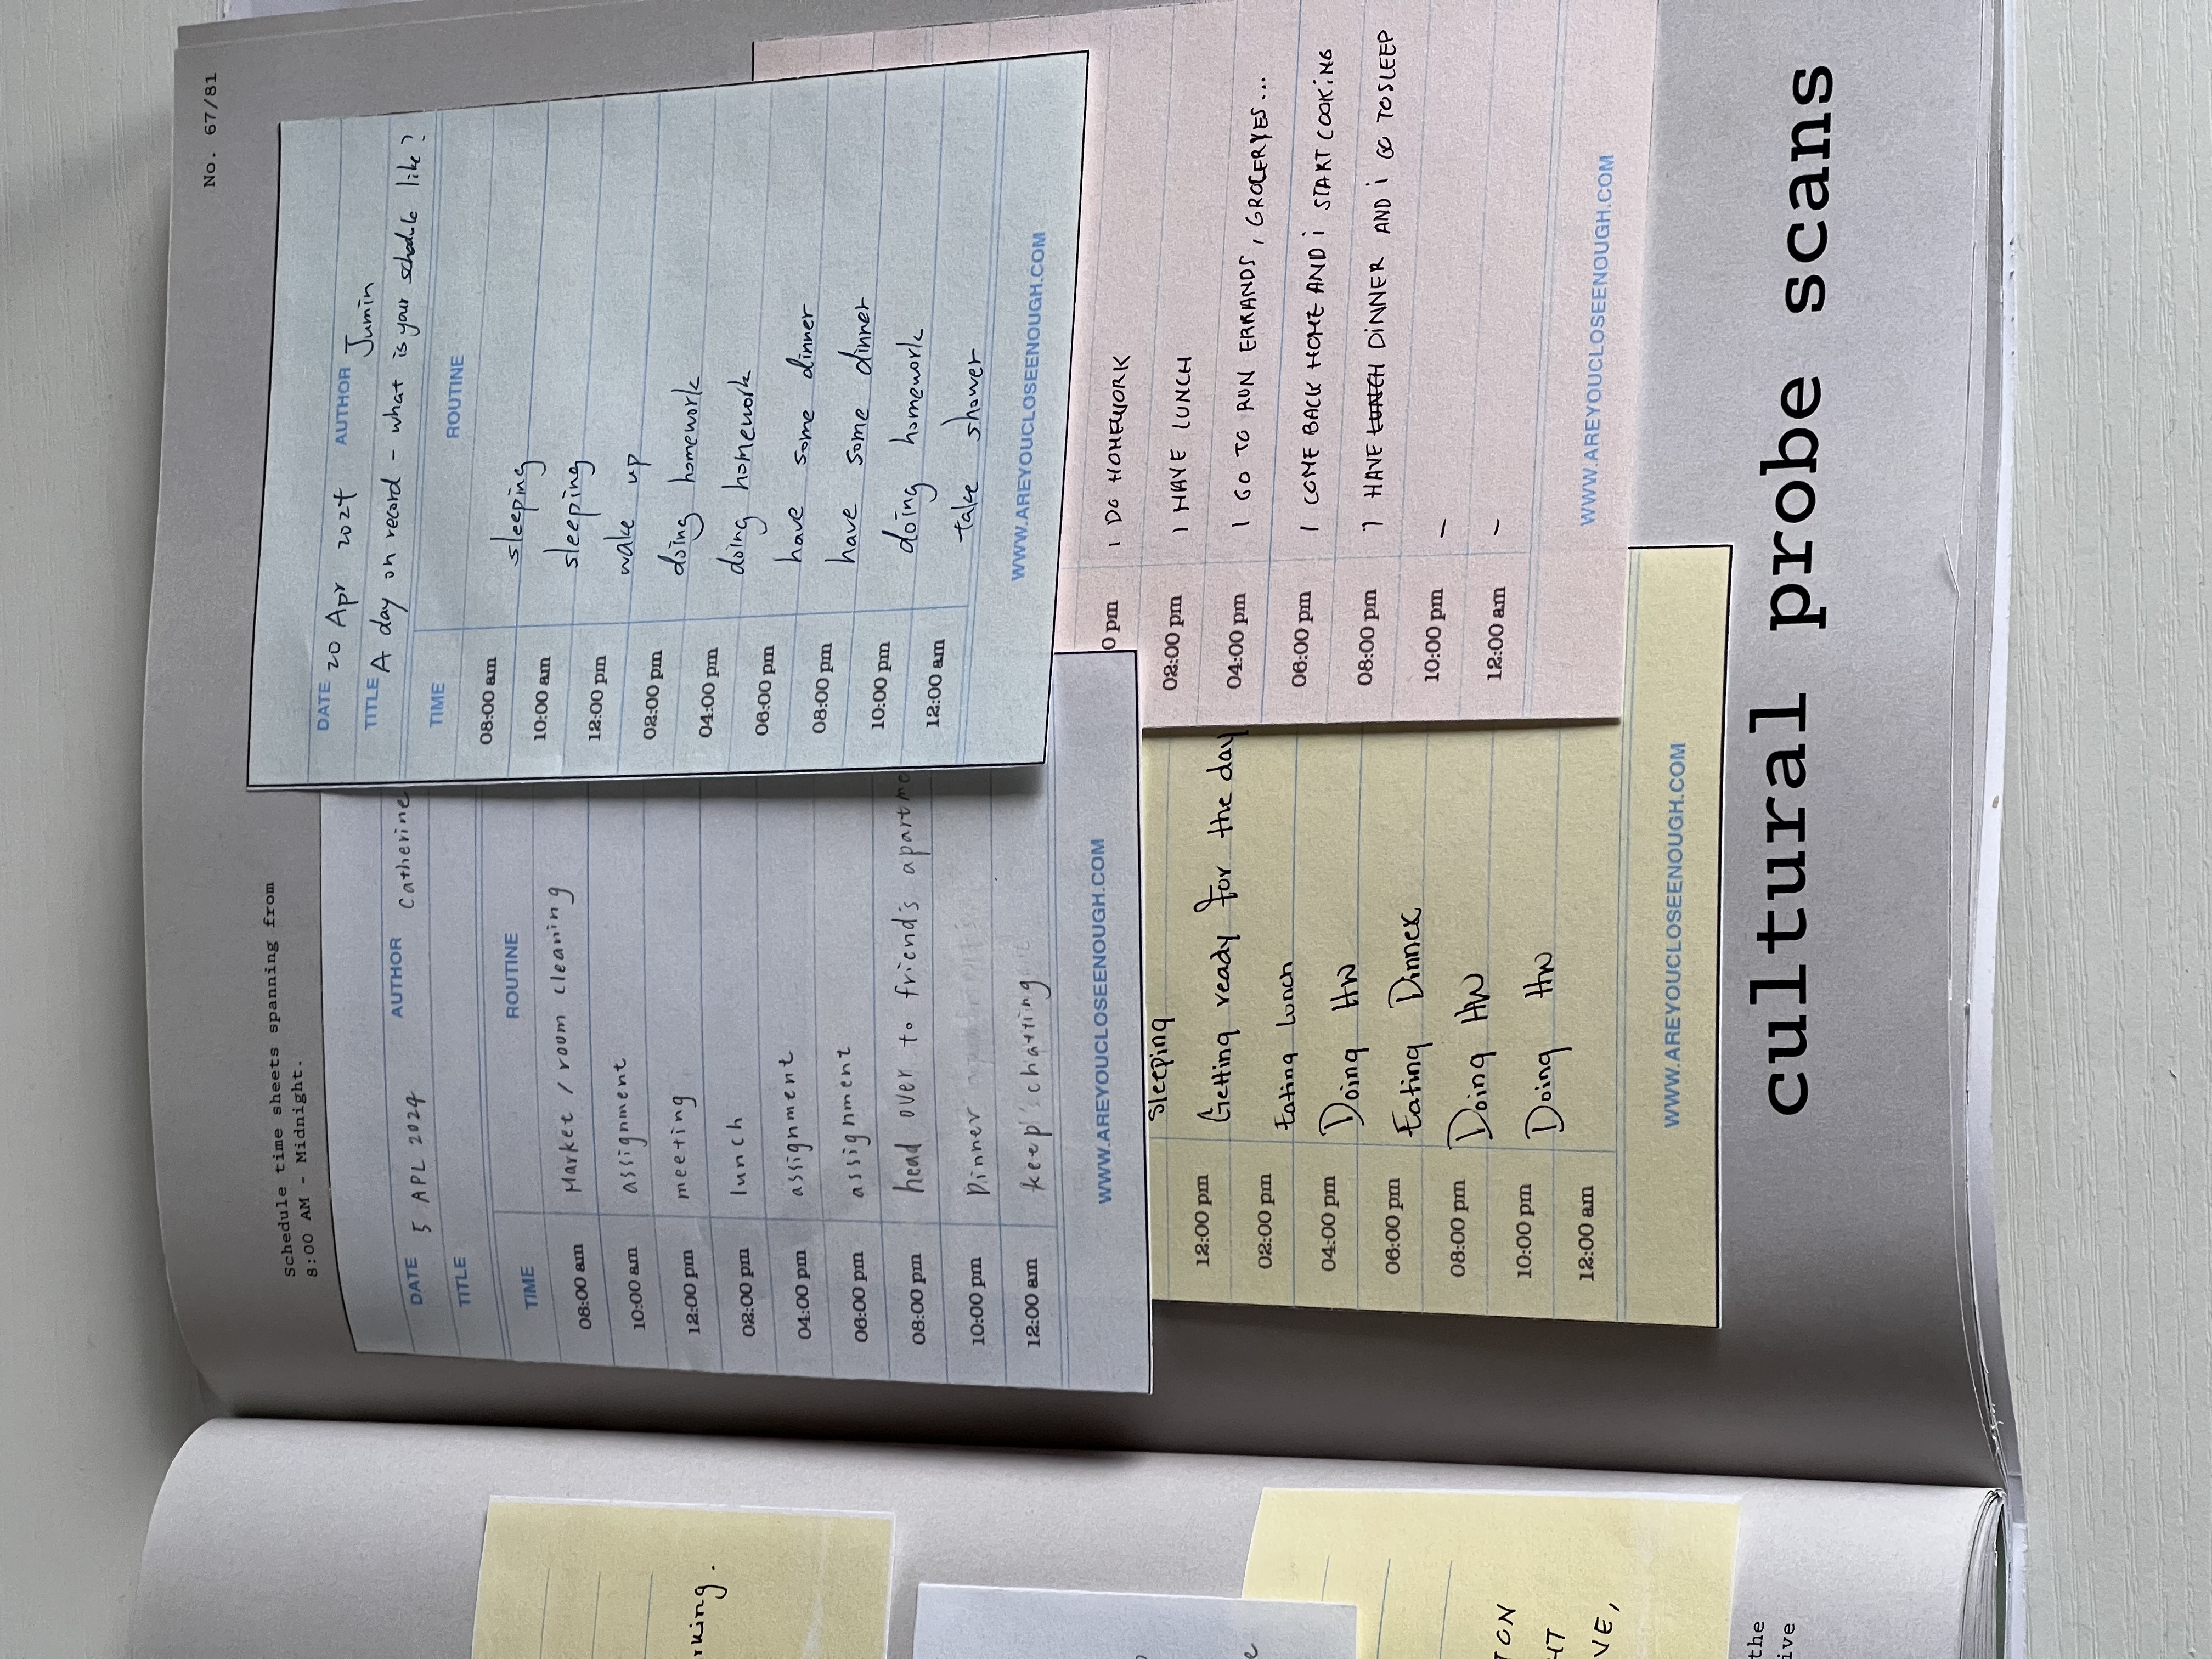 No. 67/81
Schedule time sheets spanning from
8:00 AM - Midnight.
DATE 5 APL 2024 AUTHOR Catherine
TITLE
TIME ROUTINE
08:00 am Market / room cleaning
10:00 am assignment
12:00 pm meeting
02:00 pm lunch
04:00 pm assignment
06:00 pm assignment
08:00 pm head over to friend's apartme
10:00 pm Dinner
12:00 am keep's chatting
WWW.AREYOUCLOSEENOUGH.COM
DATE 20 Apr 2024 AUTHOR Jumin
TITLE A day on record - what is your schedule like?
TIME ROUTINE
08:00 am sleeping
10:00 am sleeping
12:00 pm wake up
02:00 pm doing homework
04:00 pm doing homework
06:00 pm have some dinner
08:00 pm have some dinner
10:00 pm doing homework
12:00 am take shower
WWW.AREYOUCLOSEENOUGH.COM
Sleeping
12:00 pm Getting ready for the day
02:00 pm Eating Lunch
04:00 pm Doing HW
06:00 pm Eating Dinner
08:00 pm Doing HW
10:00 pm Doing HW
12:00 am
WWW.AREYOUCLOSEENOUGH.COM
0 pm I DO HOMEWORK
02:00 pm I HAVE LUNCH
04:00 pm I GO TO RUN ERRANDS, GROCERYES...
06:00 pm I COME BACK HOME AND i START COOKiNG
08:00 pm I HAVE LUNCH DINNER AND i GO TO SLEEP
10:00 pm -
12:00 am -
WWW.AREYOUCLOSEENOUGH.COM
cultural probe scans
rking.
HT
VE,
the
ive